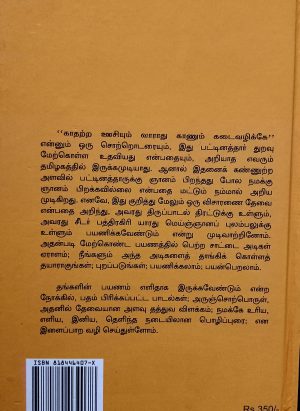 "காதற்ற ஊசியும் வாராது காணும் கடைவழிக்கே"
என்னும் ஒரு சொற்றொடரையும், இது பட்டினத்தார் துறவு
மேற்கொள்ள உதவியது என்பதையும், அறியாத எவரும்
தமிழகத்தில் இருக்கமுடியாது. ஆனால் இதனைக் கண்ணுற்ற
அளவில் பட்டினத்தாருக்கு ஞானம் பிறந்தது போல நமக்கு
ஞானம் பிறக்கவில்லை என்பதை மட்டும் நம்மால் அறிய
முடிகிறது. எனவே, இது குறித்து மேலும் ஒரு விசாரணை தேவை
என்பதை அறிந்து, அவரது திருப்பாடல் திரட்டுக்கு உள்ளும்,
அவரது சீடர் பத்திரகிரி யாரது மெய்ஞ்ஞானப் புலம்பலுக்கு
உள்ளும் பயணிக்கவேண்டும் என்று முடிவாற்றினோம்.
அதன்படி மேற்கொண்ட பயணத்தில் பெற்ற சாட்டை அடிகள்
ஏராளம்; நீங்களும் அந்த அடிகளைத் தாங்கிக் கொள்ளத்
தயாராகுங்கள்; புறப்படுங்கள்; பயணிக்கலாம்; பயன்பெறலாம்.
தங்களின் பயணம் எளிதாக இருக்கவேண்டும் என்ற
நோக்கில், பதம் பிரிக்கப்பட்ட பாடல்கள்; அருஞ்சொற்பொருள்,
அதனில் தேவையான அளவு தத்துவ விளக்கம்; நமக்கே உரிய,
எளிய, இனிய, தெளிந்த நடையிலான பொழிப்புரை; என
இளைப்பாற வழி செய்துள்ளோம்.
ISBN 818446407-X
Rs.350/-